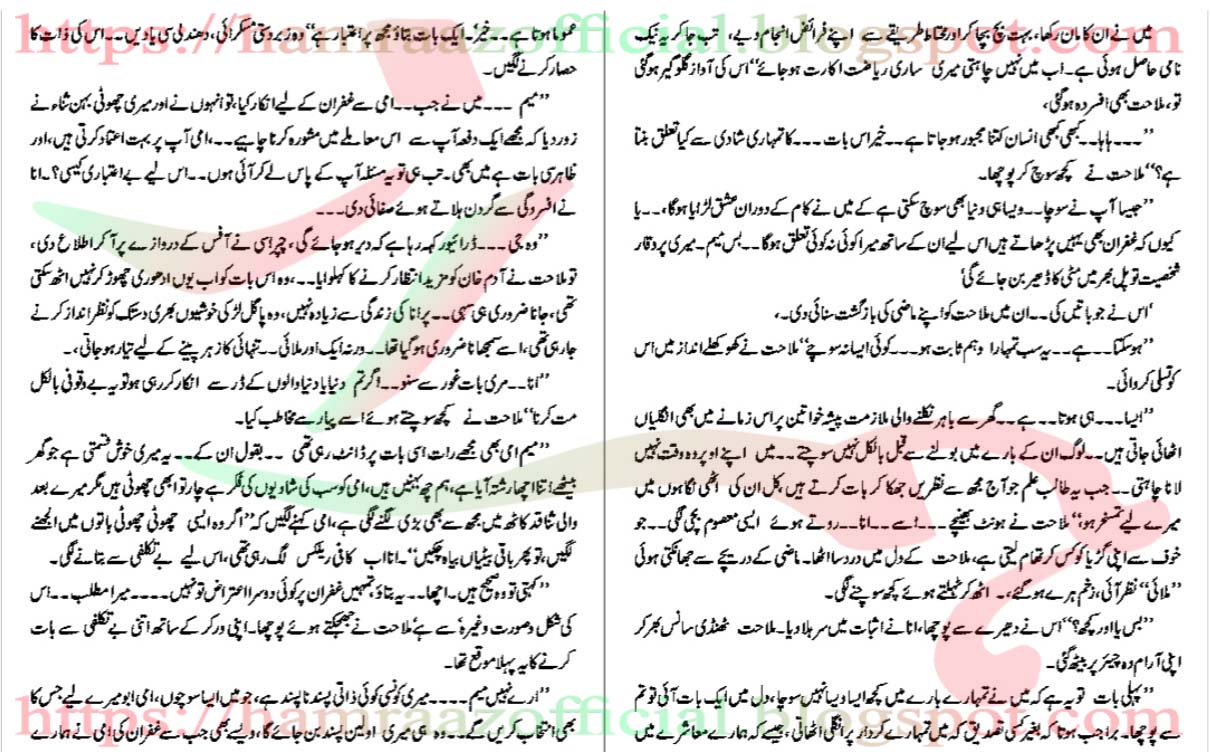 https://hamraazofficial.blogspot.com
میں نے ان کا مان رکھا، بہت بچ بچا کر اور محتاط طریقے سے اپنے فرائض انجام دیے، تب جا کر یہ نیک
نامی حاصل ہوئی ہے۔ اب میں نہیں چاہتی میری ساری ریاضت اکارت ہو جائے“ اس کی آواز گلوگیر ہو گئی
تو، ملاحت بھی افسردہ ہو گئی،
”۔۔۔ ہاہا۔۔ کبھی کبھی انسان کتنا مجبور ہو جاتا ہے۔۔ خیر اس بات ۔۔۔ کا تمہاری شادی سے کیا تعلق بنتا
ہے؟“ ملاحت نے کچھ سوچ کر پوچھا۔
”جیسا آپ نے سوچا۔۔ ویسا ہی دنیا بھی سوچ سکتی ہے کے میں نے کام کے دوران عشق لڑایا ہوگا،۔۔ یا
کیوں کہ غفران بھی یہیں پڑھاتے ہیں اس لیے ان کے ساتھ میرا کوئی نہ کوئی تعلق ہوگا۔۔ بس میم۔ میری پروقار
شخصیت تو پل بھر میں مٹی کا ڈھیر بن جائے گی‘
‘اس نے جو باتیں کی۔۔ ان میں ملاحت کو اپنے ماضی کی بازگشت سنائی دی۔،
”ہو سکتا۔۔ ہے۔۔ یہ سب تمہارا وہم ثابت ہو۔۔۔ کوئی ایسا نہ سوچے“ ملاحت نے کھوکھلے انداز میں اس
کو تسلی کروائی۔
”ایسا۔۔۔ ہی ہوتا۔۔ ہے۔۔ گھر سے باہر نکلنے والی ملازمت پیشہ خواتین پر اس زمانے میں بھی انگلیاں
اٹھائی جاتی ہیں۔۔ لوگ ان کے بارے میں بولنے سے قبل بالکل نہیں سوچتے۔۔ میں اپنے اوپر وہ وقت نہیں
لانا چاہتی۔۔ جب یہ طالب علم جو آج مجھ سے نظریں جھکا کر بات کرتے ہیں، کل ان کی اٹھی نگاہوں میں
میرے لیے تمسخر ہو،“ ملاحت نے ہونٹ بھینچے ۔۔۔ اسے۔۔ انا۔۔ روتے ہوئے ایسی معصوم بچی لگی۔۔ جو
خوف سے اپنی گڑیا کو کس کر تھام لیتی ہے، ملاحت کے دل میں درد سا اٹھا۔ ماضی کے دریچے سے جھانکتی ہوئی
”ملائی“ نظر آئی، زخم ہرے ہو گئے،۔ اٹھ کر ٹہلتے ہوئے کچھ سوچنے لگی۔
”بس یا اور کچھ؟“ اس نے دھیرے سے پوچھا، انا نے اثبات میں سر ہلا دیا۔ ملاحت ٹھنڈی سانس بھر کر
اپنی آرام دہ چیئر پر بیٹھ گئی۔
”پہلی بات تو یہ ہے کہ میں نے تمہارے بارے میں کچھ ایسا ویسا نہیں سوچا، دل میں ایک بات آئی تو تم
سے پوچھا۔ برا جب ہوتا کہ بغیر کسی تصدیق کہ میں تمہارے کردار پر انگلی اٹھاتی، جیسے کہ ہمارے معاشرے میں
عموما ہوتا ہے۔۔ خیر، ایک بات بتاؤ مجھ پر اعتبار ہے“ وہ زبردستی مسکرائی، دھندلی سی یادیں۔۔ اس کی ذات کا
حصار کرنے لگیں۔
”میم ۔۔۔ میں نے جب۔۔۔ امی سے غفران کے لیے انکار کیا، تو انہوں نے اور میری چھوٹی بہن ثناء نے
زور دیا کہ مجھے ایک دفعہ آپ سے اس معاملے میں مشورہ کرنا چاہیے۔۔، امی آپ پر بہت اعتماد کرتی ہیں، اور
ظاہر سی بات ہے میں بھی۔ تب ہی تو یہ مسئلہ آپ کے پاس لے کر آئی ہوں۔۔ اس لیے بے اعتباری کیسی؟۔ انا
نے افسردگی سے گردن ہلاتے ہوئے صفائی دی۔۔۔
”وہ جی ۔۔۔ ڈرائیور کہہ رہا ہے کہ دیر ہو جائے گی، چپراسی نے آفس کے دروازے پر آ کر اطلاع دی،
تو ملاحت نے آدم خان کو مزید انتظار کرنے کا کہلوایا۔۔، وہ اس بات کو اب یوں ادھوری چھوڑ کر نہیں اٹھ سکتی
تھی، جانا ضروری ہی سہی۔۔ پر انا کی زندگی سے زیادہ نہیں، وہ پاگل لڑکی خوشیوں بھری دستک کو نظر انداز کرنے
جا رہی تھی، اسے سمجھانا ضروری ہو گیا تھا۔۔ ورنہ ایک اور ملائی۔۔ تنہائی کا زہر پینے کے لیے تیار ہو جاتی،۔
”انا۔۔ مری بات غور سے سنو۔۔ اگر تم دنیا یا دنیا والوں کے ڈر سے انکار کر رہی ہو تو یہ بے وقوفی بالکل
مت کرنا“ ملاحت نے کچھ سوچتے ہوئے اسے پیار سے مخاطب کیا۔
”میم امی بھی مجھے رات اسی بات پر ڈانٹ رہی تھی ۔۔ بقول ان کے۔۔ یہ میری خوش قسمتی ہے جو گھر
بیٹھے اتنا اچھا رشتہ آیا ہے، ہم چھ بہنیں ہیں، امی کو سب کی شادیوں کی فکر ہے چار تو ابھی چھوٹی ہیں مگر میرے بعد
والی ثنا قد کاٹھ میں مجھ سے بھی بڑی لگنے لگی ہے، امی کہنے لگیں کہ ”اگر وہ ایسی چھوٹی چھوٹی باتوں میں الجھنے
لگیں، تو پھر باقی بیٹیاں بیاہ چکیں“۔ انا اب کافی ریلکس لگ رہی تھی، اس لیے بے تکلفی سے بتانے لگی۔
”کہتی تو وہ صحیح ہیں۔ اچھا۔۔ یہ بتاؤ تمہیں غفران پر کوئی دوسرا اعتراض تو نہیں۔۔۔۔ میرا مطلب۔۔ اس
کی شکل و صورت وغیرہ سے ہے‘ ملاحت نے جھجکتے ہوئے پوچھا۔ اپنی ورکر کے ساتھ اتنی بے تکلفی سے بات
کرنے کا یہ پہلا موقع تھا۔
”ارے نہیں میم ۔۔۔۔ میری کونسی کوئی ذاتی پسند نا پسند ہے، جو میں ایسا سوچوں، امی ابو میرے لیے جس کا
بھی انتخاب کریں گے۔۔ وہ ہی میری اولین پسند بن جائے گا، ویسے بھی جب سے غفران کی امی نے ہمارے
https://hamraazofficial.blogspot.com